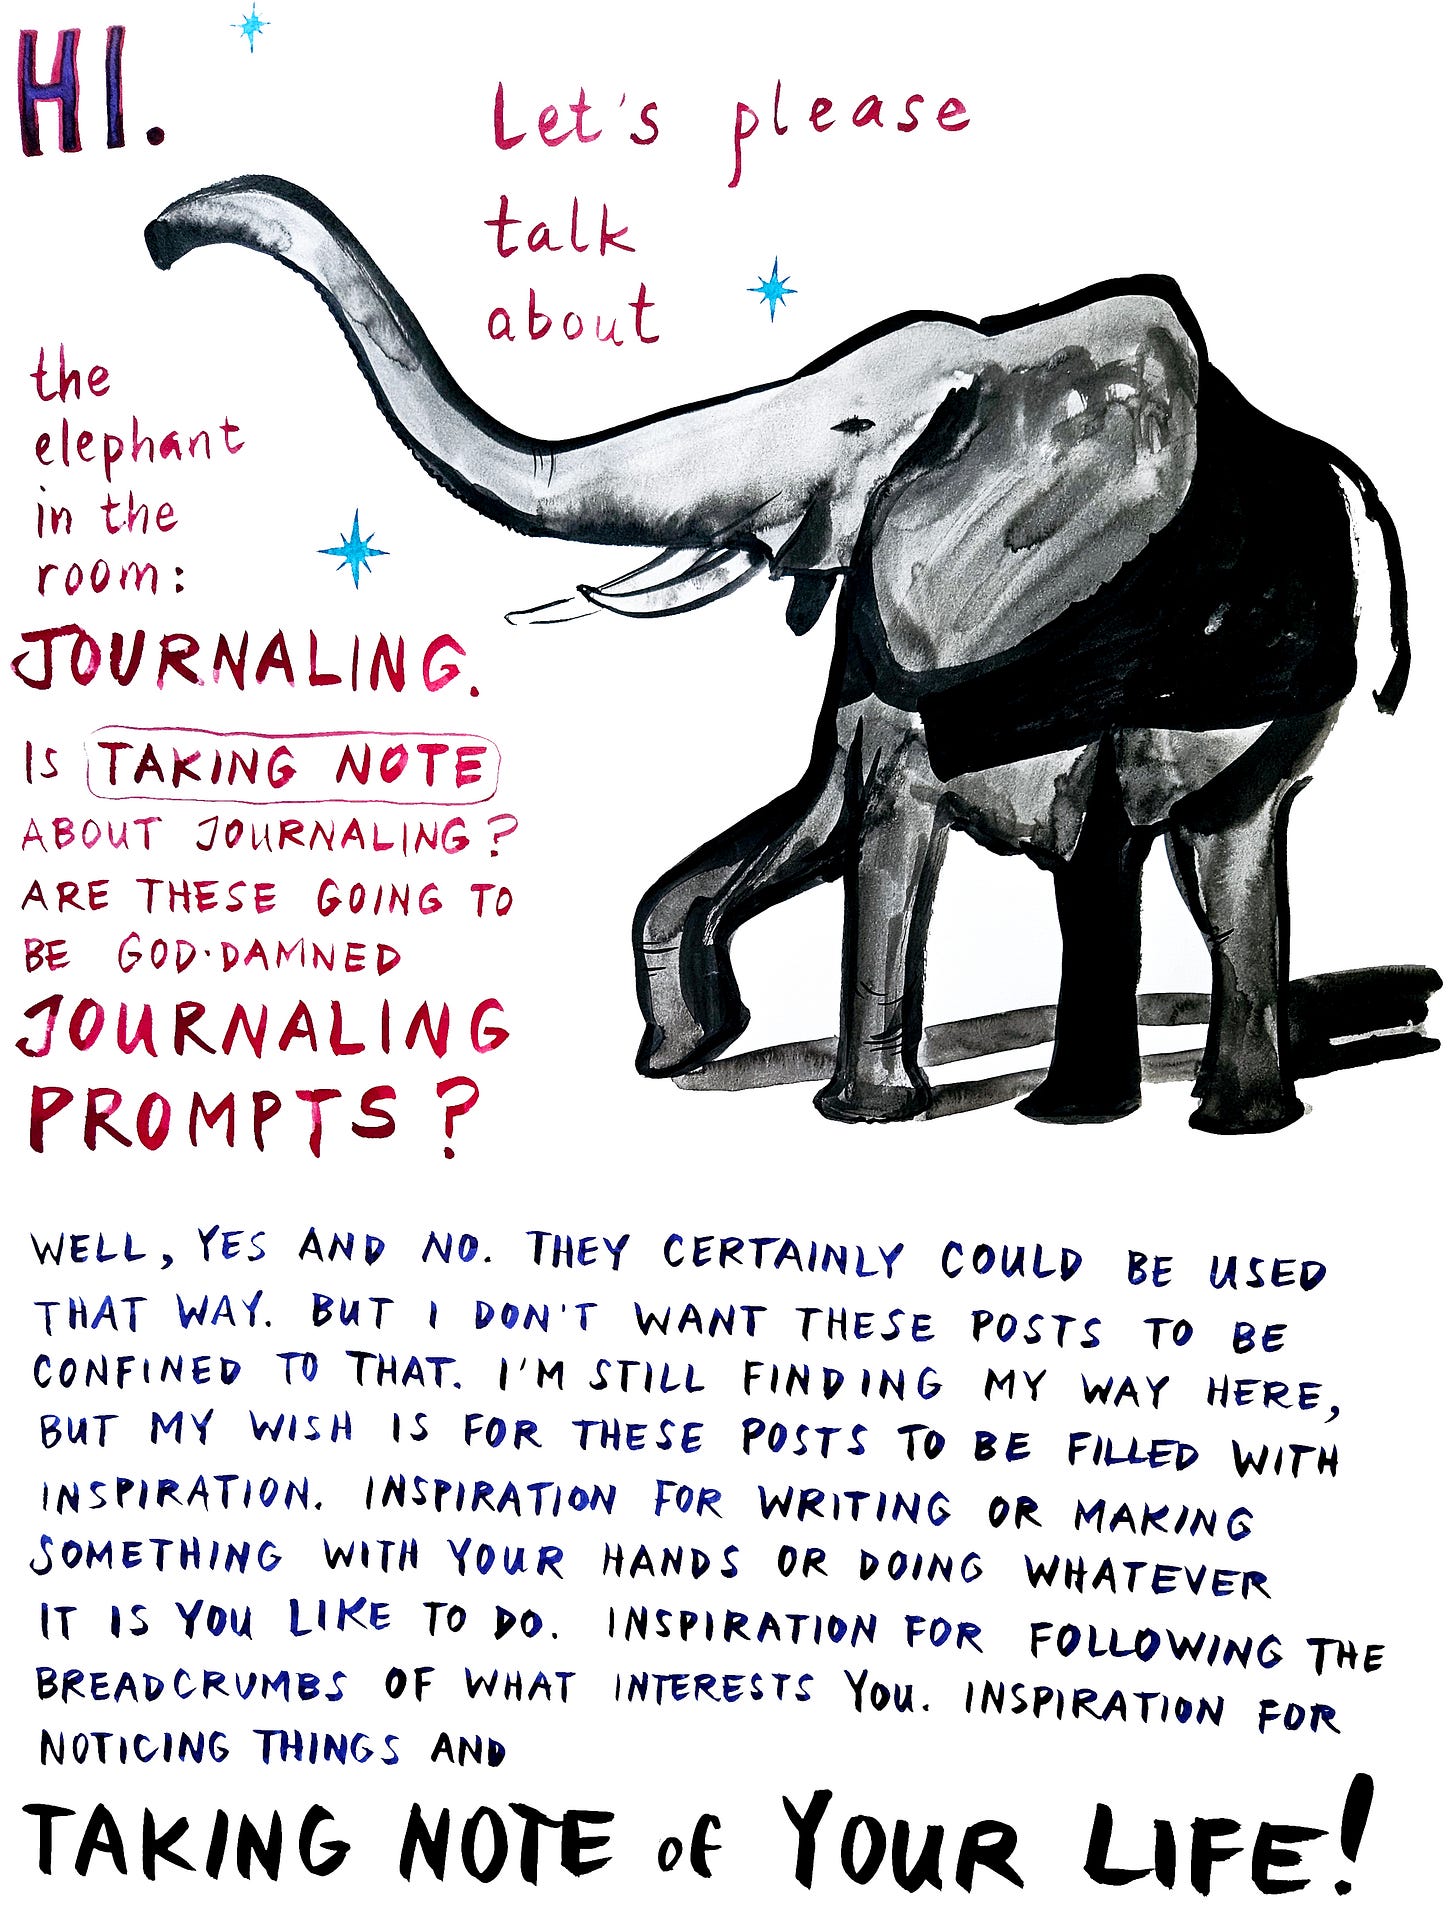 HI.
Let's please
talk
about
the
elephant
in the
room:
JOURNALING.
IS TAKING NOTE
ABOUT JOURNALING?
ARE THESE GOING TO
BE GOD·DAMNED
JOURNALING
PROMPTS?
WELL, YES AND NO. THEY CERTAINLY COULD BE USED
THAT WAY. BUT I DON'T WANT THESE POSTS TO BE
CONFINED TO THAT. I'M STILL FINDING MY WAY HERE,
BUT MY WISH IS FOR THESE POSTS TO BE FILLED WITH
INSPIRATION. INSPIRATION FOR WRITING OR MAKING
SOMETHING WITH YOUR HANDS OR DOING WHATEVER
IT IS YOU LIKE TO DO. INSPIRATION FOR FOLLOWING THE
BREADCRUMBS OF WHAT INTERESTS YOU. INSPIRATION FOR
NOTICING THINGS AND
TAKING NOTE of YOUR LIFE!